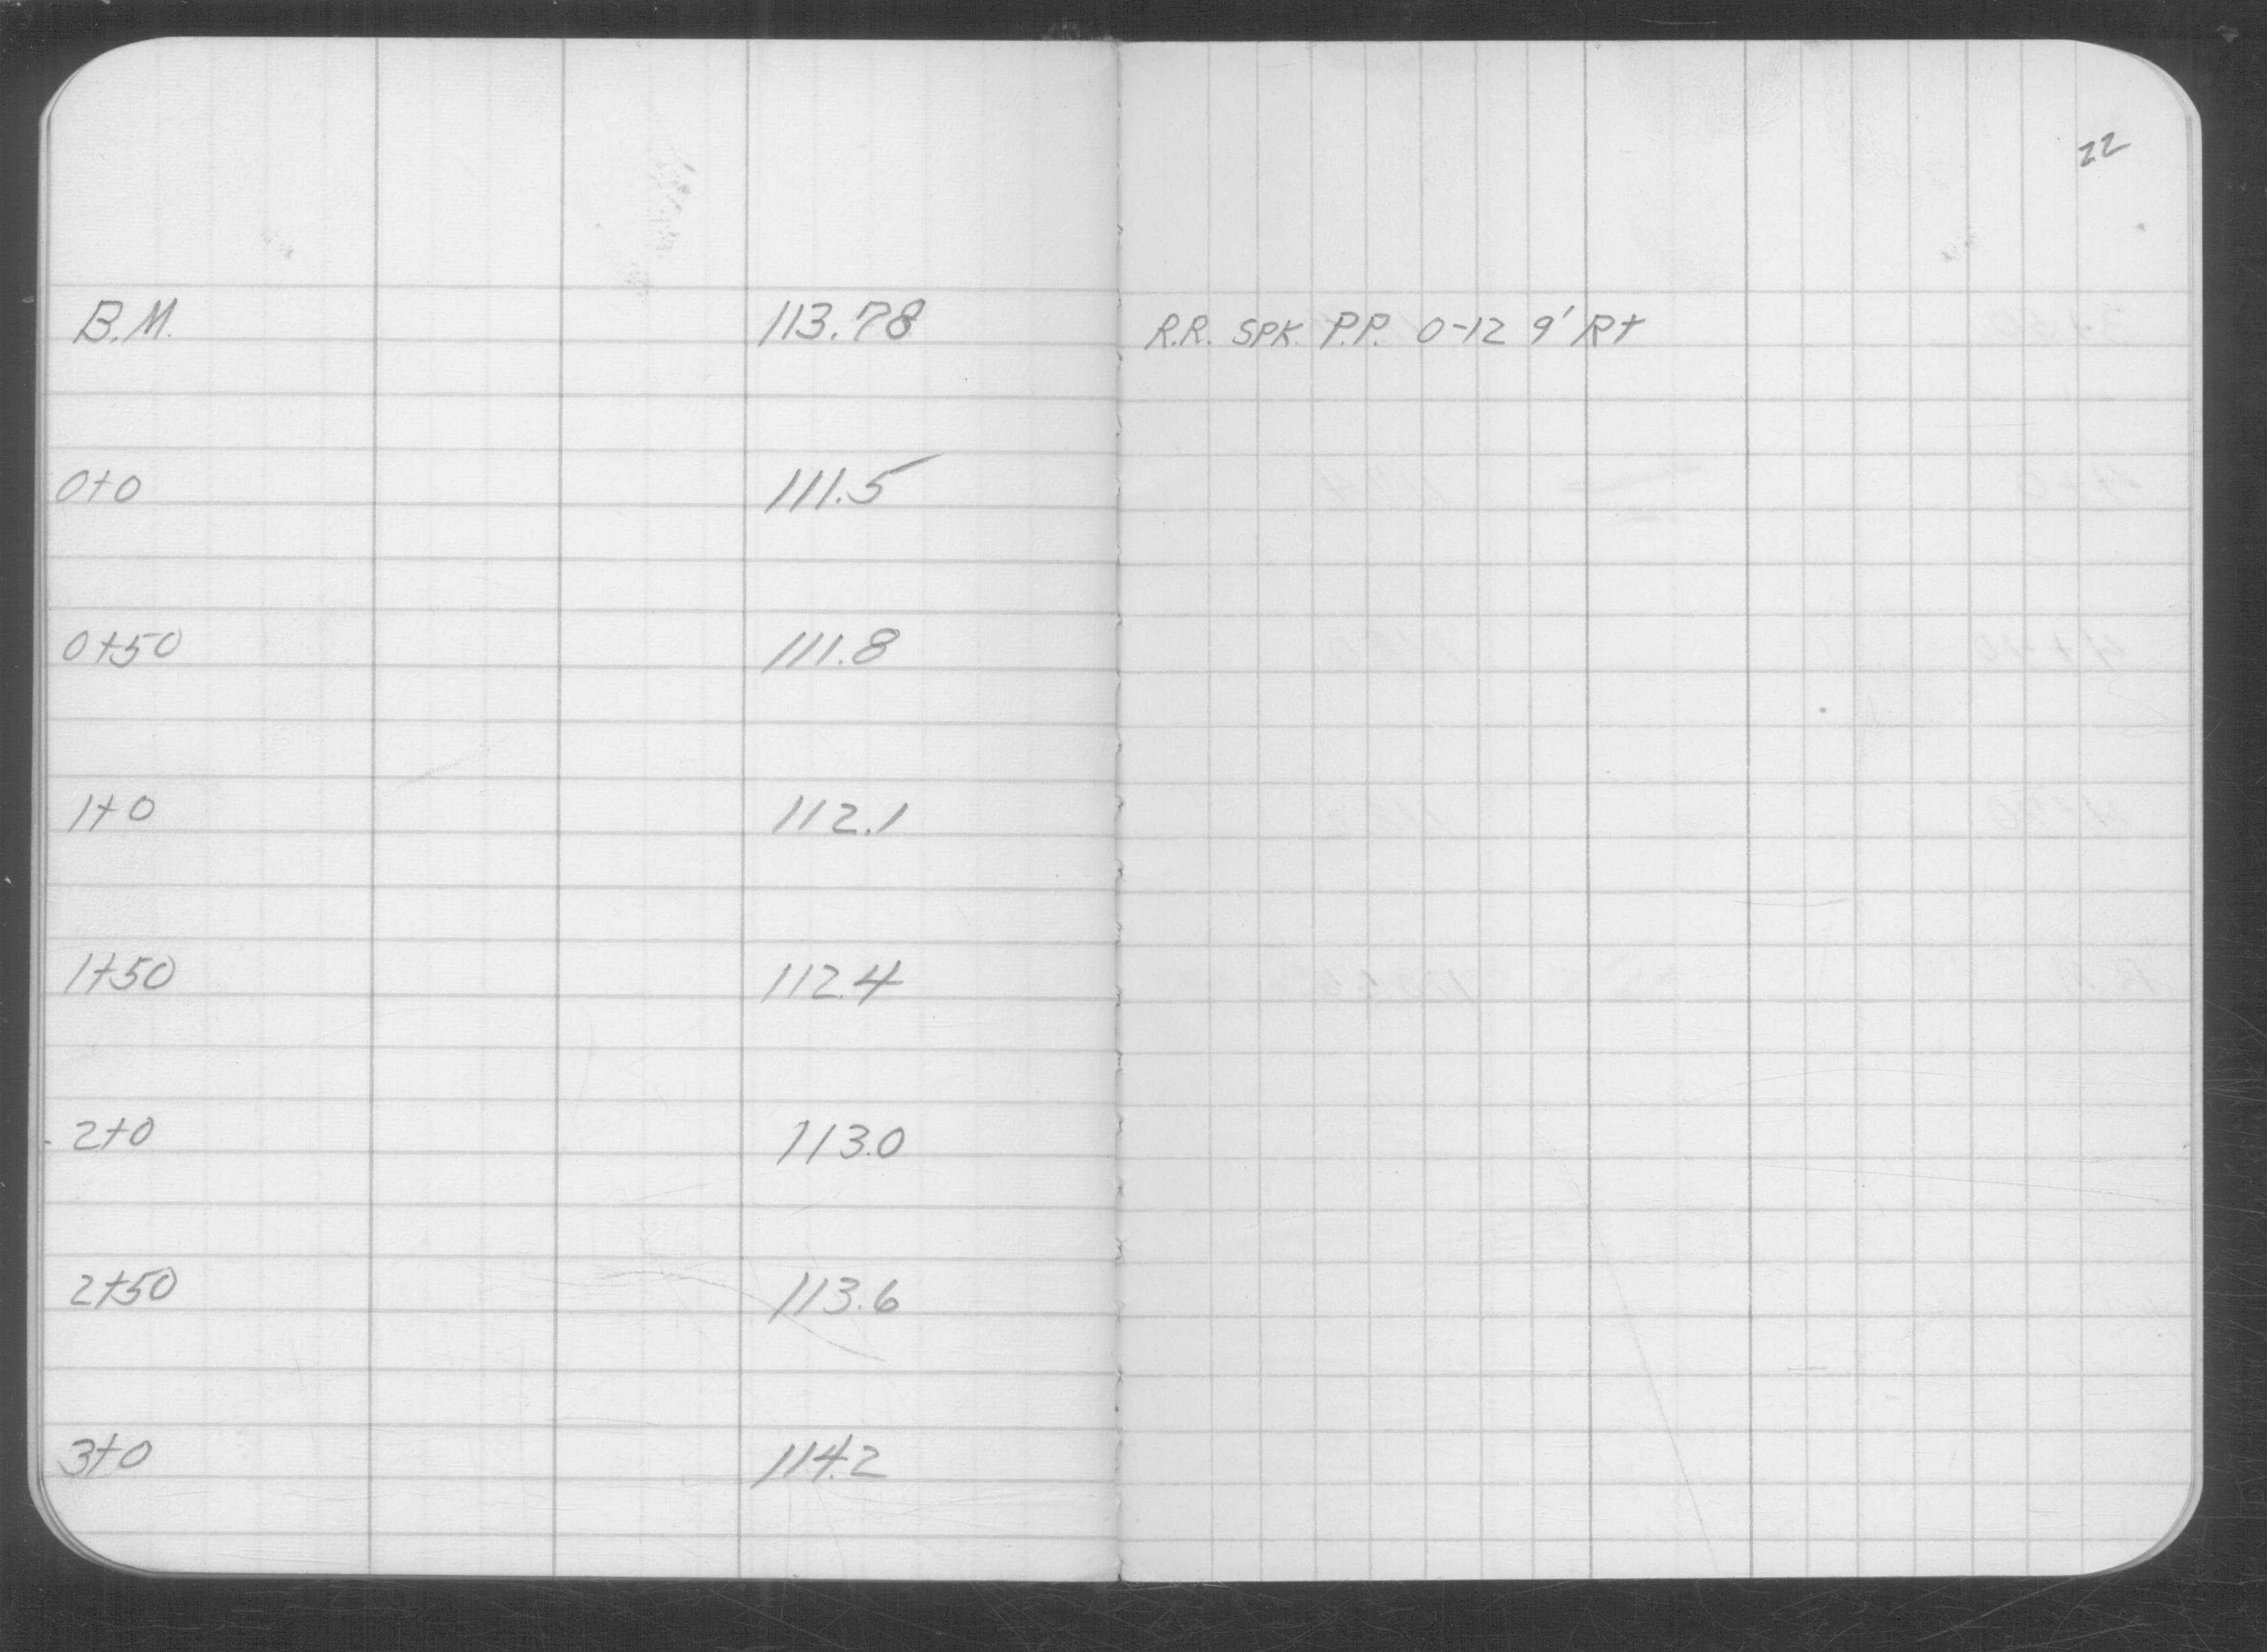 22
B.M. 113.78 R.R. SPK. P.P. 0-12 9' Rt
0+0 111.5
0+50 111.8
1+0 112.1
1+50 112.4
2+0 113.0
2+50 113.6
3+0 114.2